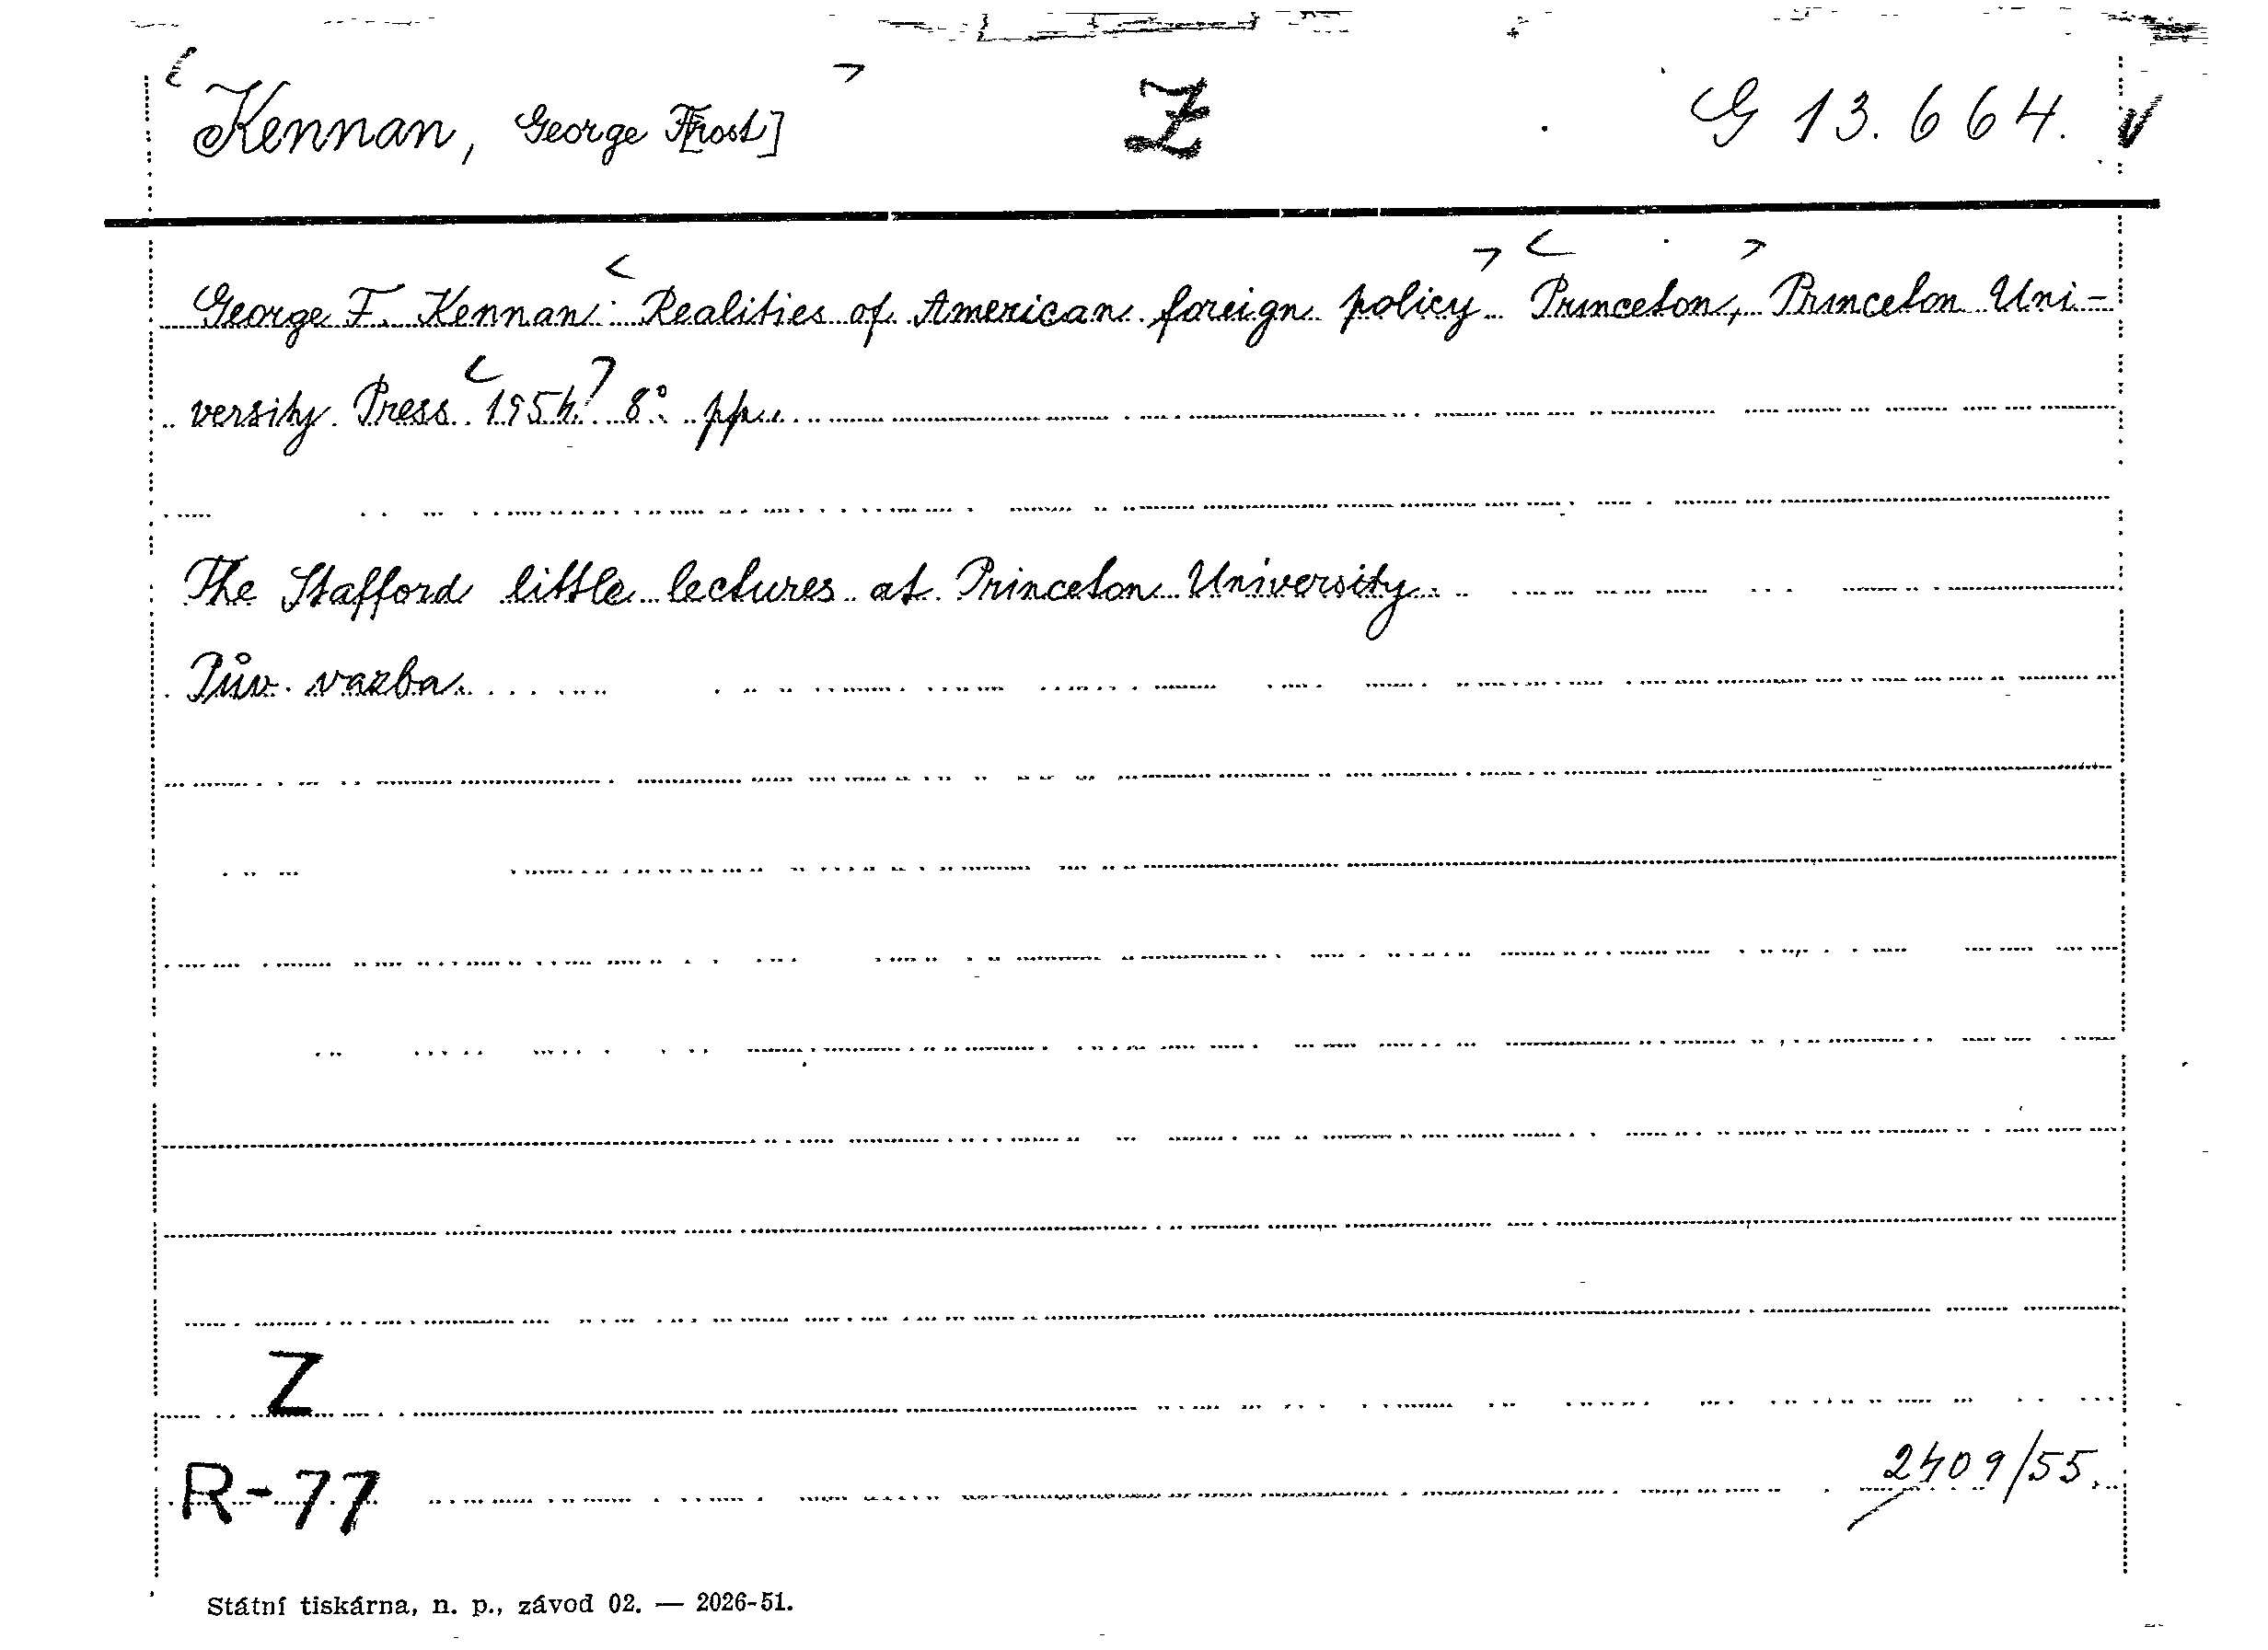 Kennan, George F[rost] Z G 13.664.
George F. Kennan: Realities of American foreign policy. Princeton, Princeton Uni-
versity Press 1954. 8°. pp.
The Stafford little lectures at Princeton University.
Pův. vazba.
Z
R-77 2409/55.
Státní tiskárna, n. p., závod 02. — 2026-51.